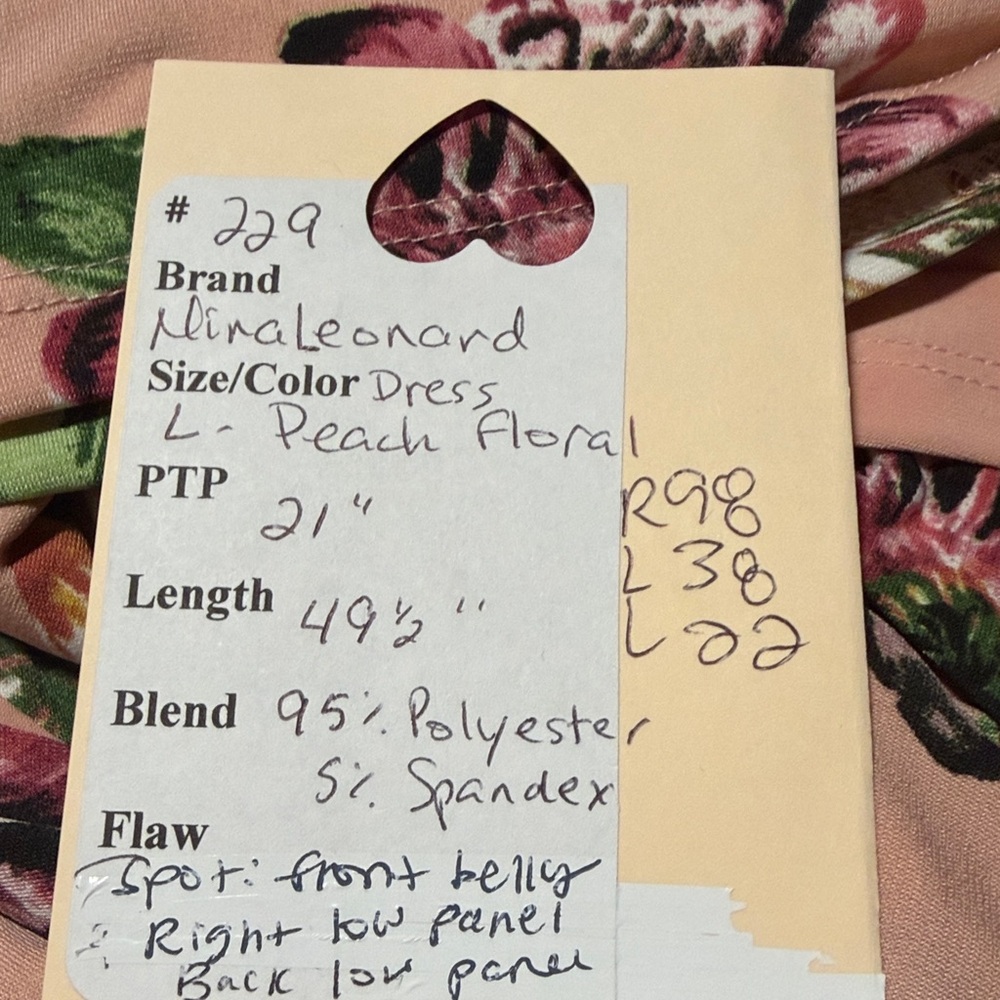 # 229
Brand
NinaLeonard
Size/Color Dress
L - Peach Floral
PTP
21"
R98
L 38
L 22
Length
49 1/2"
Blend 95% Polyester
5% Spandex
Flaw
Spot: front belly
Right low panel
Back low panel